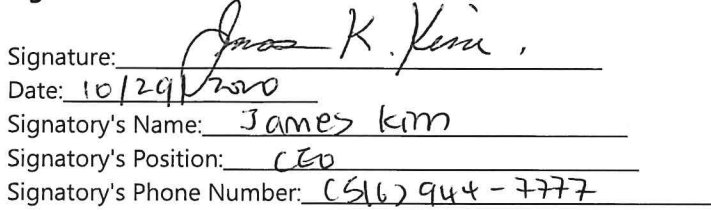 Signature: James K. Kim
Date: 10/29/2020
Signatory's Name: James Kim
Signatory's Position: CEO
Signatory's Phone Number: (516) 944-7777